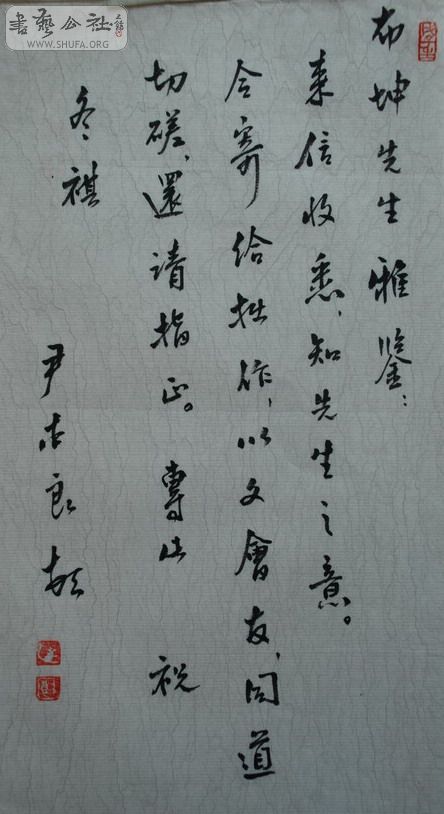 布坤先生雅鉴：
来信收悉，知先生之意。
今寄给拙作，以文會友，同道
切磋，還请指正。專此 祝
冬祺
尹志良
書藝公社
WWW.SHUFA.ORG